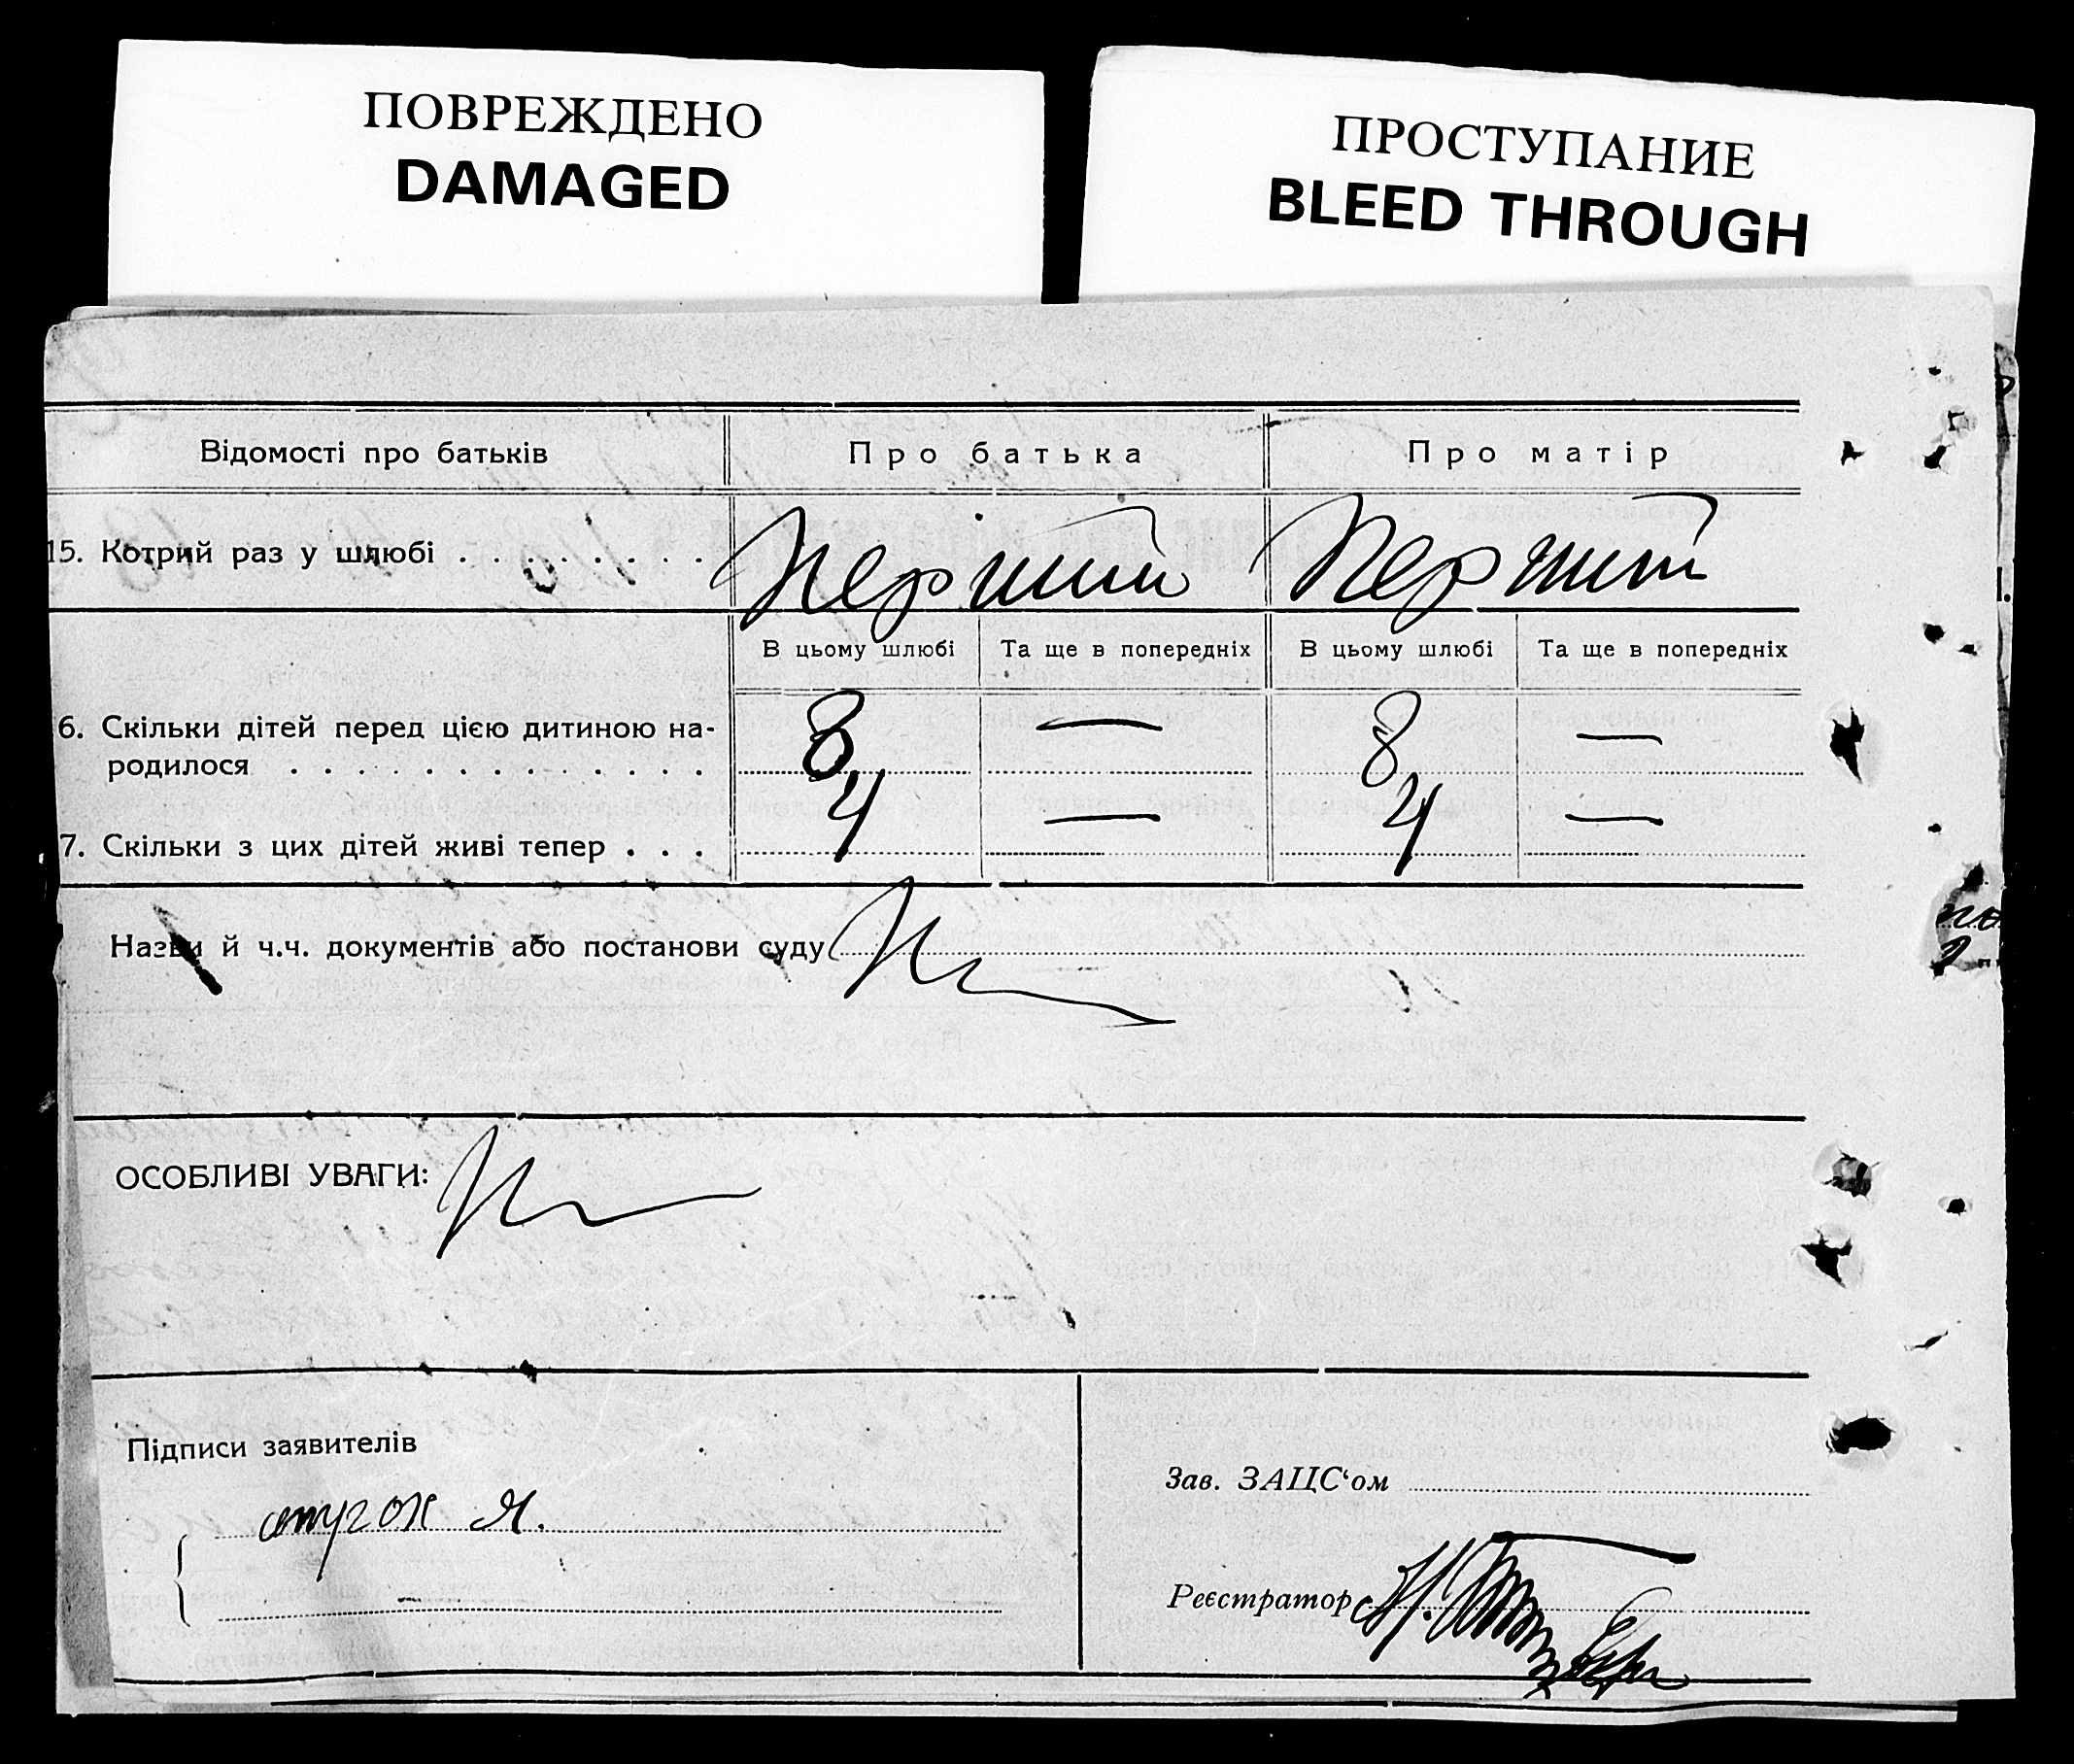 ПОВРЕЖДЕНО
DAMAGED
ПРОСТУПАНИЕ
BLEED THROUGH
Відомості про батьків
Про батька
Про матір
15. Котрий раз у шлюбі . . . . . . . .
Перший
Перший
В цьому шлюбі
Та ще в попередніх
В цьому шлюбі
Та ще в попередніх
6. Скільки дітей перед цією дитиною на-
родилося . . . . . . . . . . . . .
8 — 8 —
7. Скільки з цих дітей живі тепер . . .
4 — 4 —
Назви й ч.ч. документів або постанови суду
ОСОБЛИВІ УВАГИ:
Підписи заявителів
Зав. ЗАЦС‘ом
Реєстратор